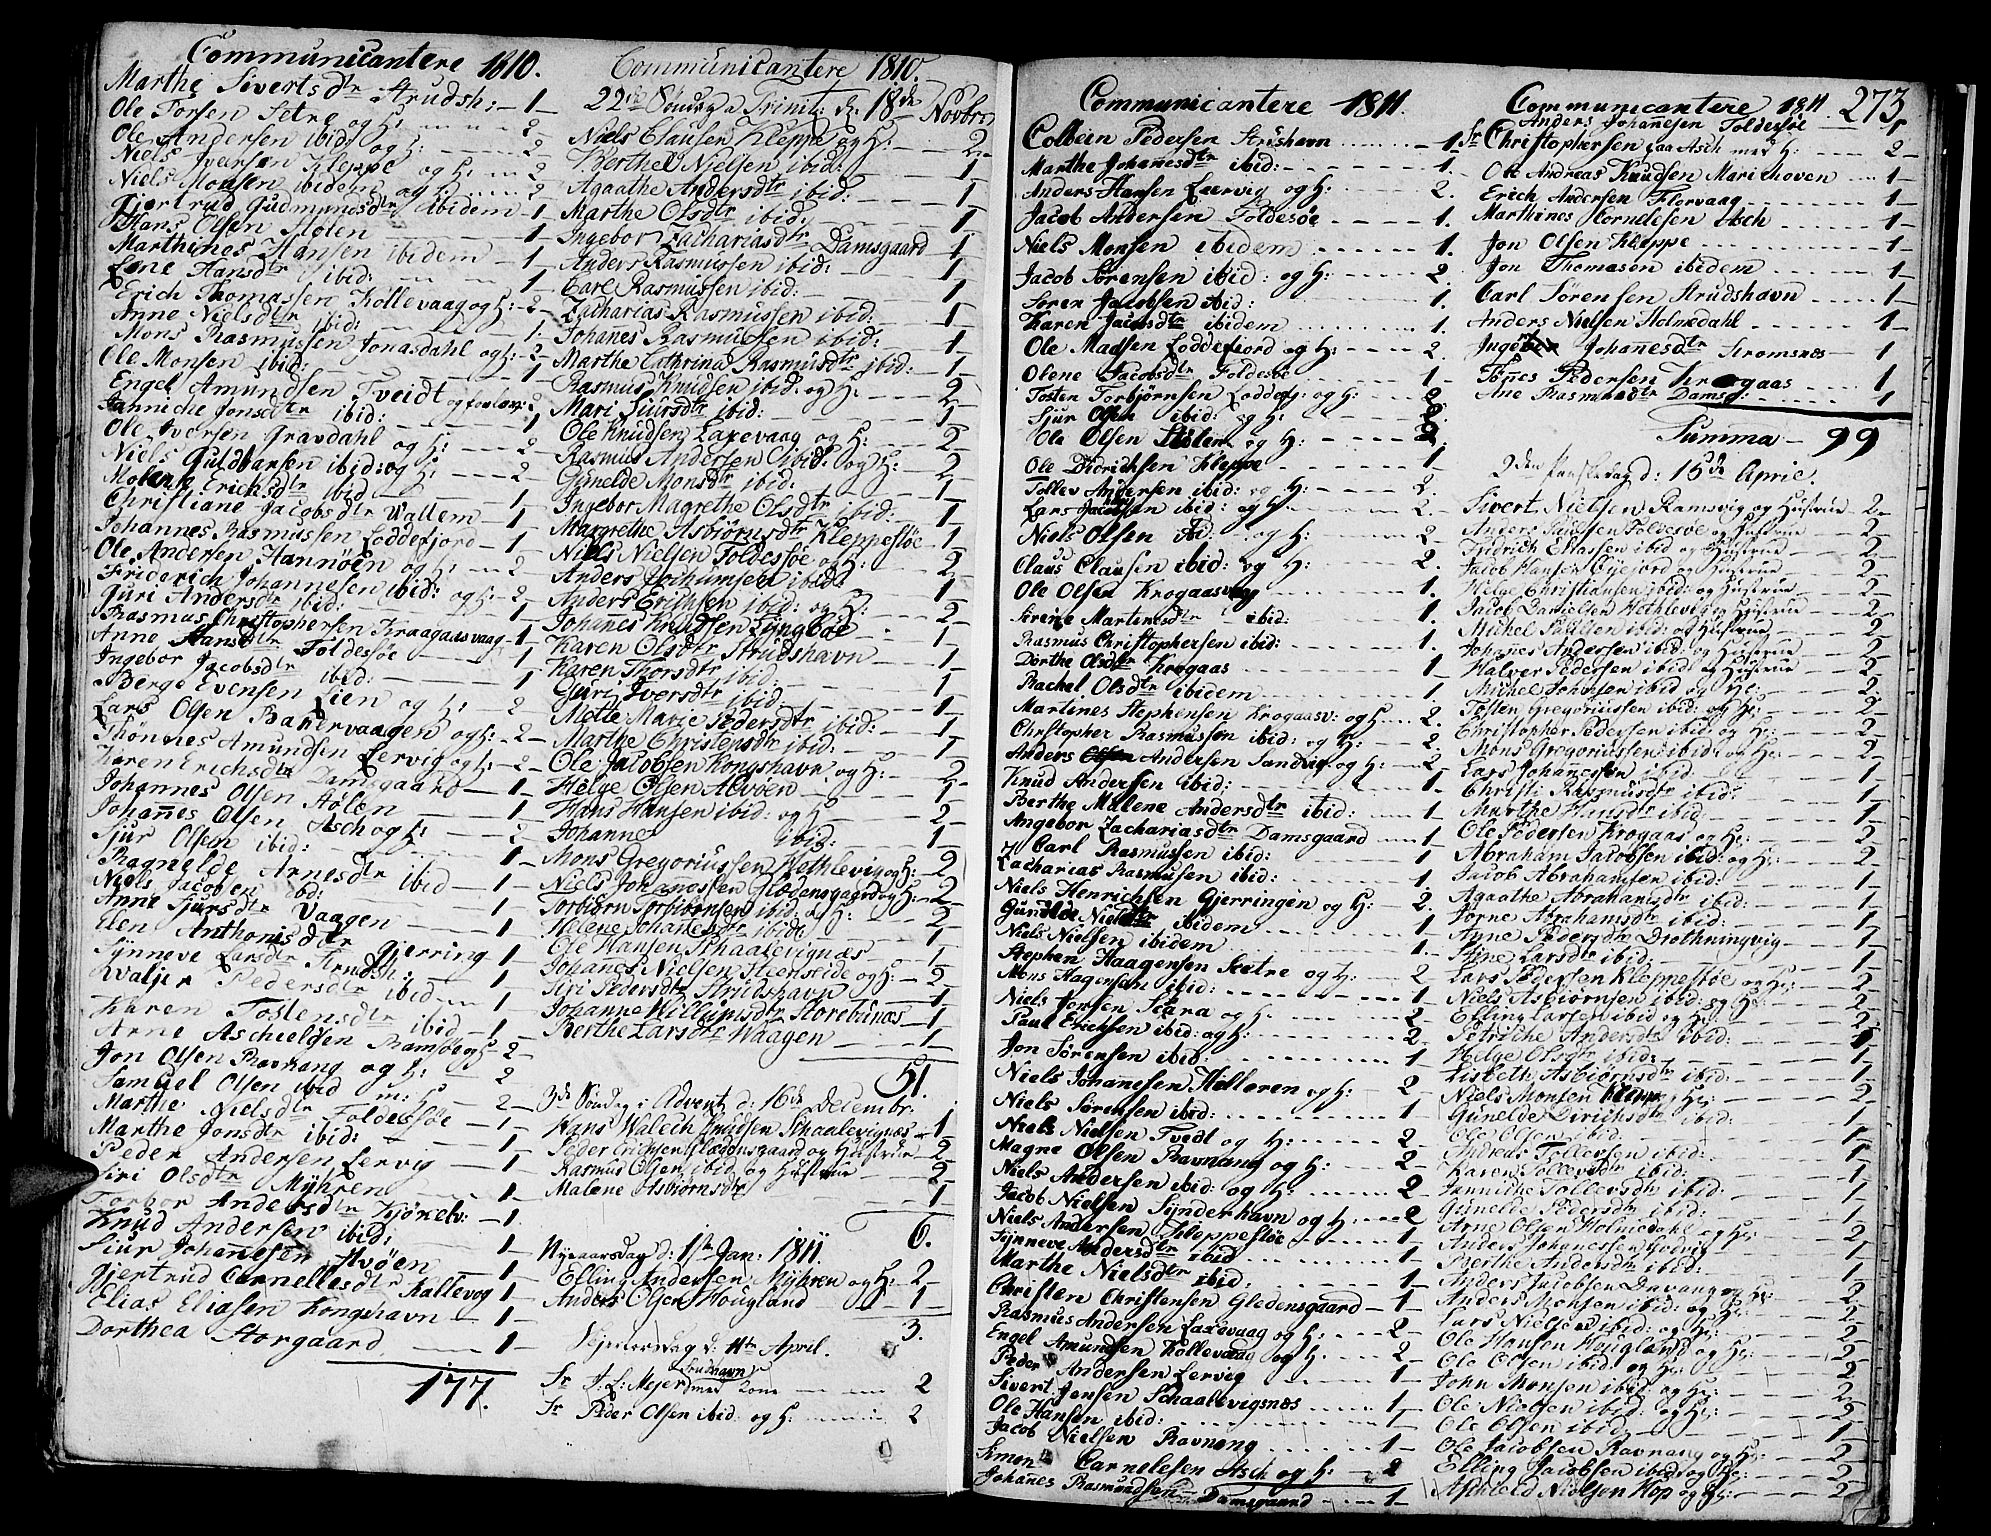 Communicantere 1810.
Marthe Sivertsdtr Strudsh: 1
Ole Torsen Setre og H: 2
Ole Andersen ibid: og H: 2
Niels Iversen Kleppe og H: 2
Niels Monsen ibidem og H: 2
Gjertrud Gudmundsdtr ibidem 1
Hans Olsen Stolen 1
Marthines Hansen ibidem 1
Lene Hansdtr ibid: 1
Erich Thomassen Kollevaag og H: 2
Anne Nielsdtr ibid: 1
Mons Rasmussen Jonasdahl og H: 2
Ole Monsen ibid: 1
Engel Amundsen Tveidt og
Janniche Jonsdtr ibid:
Ole Iversen Gravdahl og H: 2
Niels Guldbarsen ibid: og H: 2
Erichsdtr ibid 1
Christiane Jacobsdtr Wallem 1
Johannes Rasmussen Loddefjord 1
Ole Andersen Hannøen og H: 2
Friderich Johannesen ibid: og H: 2
Guri Andersdtr ibid:
Rasmus Christophersen Kraagaasvaag 1
Anne Hansdtr Foldesøe 1
Ingebor Jacobsdtr ibid: 1
Berge Evensen Lien og H: 2
Lars Olsen Bandervaagen og H: 2
Thønnes Amundsen Lervig og H: 2
Karen Erichsdtr Damsgaard 1
Johannes Olsen Stolen 1
Johannes Olsen Asch og H: 2
Sjur Olsen ibid: 1
Ragnelde Arnesdtr ibid 1
Niels Jacobsen ibid: 1
Anne Sjursdtr Vaagen 1
Elen Anthonisdtr Gjerring 1
Synneve Larsdtr Strudsh: 1
Kvaljer Pedersdtr ibid 1
Karen Tostensdtr ibid 1
Arne Ascheldsen Ramsøe og H 2
Jon Olsen Ravnang og H: 2
Samuel Olsen ibid m: H 2
Marthe Nielsdtr Foldesøe 1
Marthe Jonsdtr ibid: 1
Peder Andersen Lervig 1
Siri Olsdtr Myhren 1
Torbor Andersdtr Kjøkelv: 1
Knud Andersen ibid: 1
Siur Johanesen Alvøen 1
Gjertrud Cornellesdtr Kallevog 1
Elias Eliasen Kongshavn 1
Dorthea Storgaard 1
177.
Communicantere 1810.
22de Søndag a Trinit: d: 18de Novbr
Niels Clausen Kleppe og H: 2
Berthel Nielsen ibid: 1
Agaathe Andersdtr ibid: 1
Marthe Olsdtr ibid: 1
Ingebor Zachariasdtr Damsgaard 1
Anders Rasmussen ibid: 1
Carl Rasmussen ibid: 1
Zacharias Rasmussen ibid: 1
Johanes Rasmussen ibid: 1
Marthe Cathrina Rasmusdtr ibid: 1
Rasmus Knudsen ibid: og H: 2
Mari Siursdtr ibid: 1
Ole Knudsen Laxevaag og H: 2
Rasmus Andersen ibid: og H: 2
Gunelde Monsdtr ibid: 1
Ingebor Magrethe Olsdtr ibid: 1
Margrethe Asbiørnsdtr Kleppesøe 1
Niels Nielsen Foldesøe og H: 2
Anders Jochumsen ibid: 1
Anders Erichsen ibid: og H: 2
Johanes Knudsen Lyngbøe 1
Karen Olsdtr Strudshavn 1
Karen Thorsdtr ibid: 1
Guri Iversdtr ibid 1
Mette Marie Pedersdtr ibid: 1
Marthe Christensdtr ibid: 1
Ole Jacobsen Kongshavn og H: 2
Helge Olsen Alvøen 1
Hans Hansen ibid: og H 2
Johanne ibid: 1
Mons Gregoriussen Hethlevig og H: 2
Niels Johanessen Glædensgaard og H: 2
Torbiørn Torbiørnsen ibid: og H: 2
Helene Johanesdtr ibid: 1
Ole Hansen Schaalevignæs 1
Johannes Nielsen Steenseide og H: 2
Siri Pedersdtr Strudshavn 1
Johanne Willumsdtr Storebunæs 1
Berthe Larsdtr Waagen 1
51.
3de Søndag i Advent d: 16de Decembr.
Hans Walech Knudsen Schaalevignæs 1
Peder Erichsen Glæddensgaard og Hustrue 2
Rasmus Olsen ibid og Hustrue 2
Malene Asbiørnsdtr 1
6.
Nyeaarsdag d: 1ste Jan: 1811
Elling Andersen Myhren og H: 2
Anders Olsen Hougland 1
3.
Skjertorsdag d: 11te April.
Sr J. L: Mejer Strudshavn med Kone 2
Sr Peder Olsen ibid og H: 2
Communicantere 1811.
Colbein Pedersen Strishavn 1
Marthe Johanesdtr ibid: 1.
Anders Hansen Leervig og H: 2.
Jacob Andersen Foldesøe 1.
Niels Monsen ibidem 1.
Jacob Sørensen ibid: og H: 2.
Søren Jacobsen ibid: 1.
Karen Jacobsdtr ibidem 1.
Ole Madsen Loddefjord og H: 2.
Olene Jacobsdtr Foldesøe 1.
Tosten Torbjørnsen Loddef: og H: 2.
Sjur Olsen ibid: og H: 2.
Ole Olsen Stølen og H: 2.
Ole Didrichsen Kleppe 1
Tollev Andersen ibid: og H: 2.
Lars Jacobsen ibid: og H: 2.
Niels Olsen ibid: og H: 2.
Claus Clausen ibid: og H: 2.
Ole Olsen Krogaasvaag 1.
Sirene Martinusdtr ibid: 1.
Rasmus Christophersen ibid: 1.
Dorthe Olsdtr Krogaas 1
Rachel Olsdtr ibidem 1.
Martines Stephensen Krogaasv: og H 2.
Christopher Rasmussen ibid: og H: 2.
Anders Andersen Sandvig og H: 2.
Knud Andersen ibid: 1.
Berthe Malene Andersdtr ibid: 1
Angebor Zachariasdtr Damsgaard 1
Carl Rasmussen ibid: 1
Zacharias Rasmusen ibid: 1.
Niels Henrichsen Gjerringen og H: 2.
Gunilde Nielsdtr ibidem 1
Niels Nielsen ibidem 1.
Stephen Haagensen Seetre og H: 2
Mons Hagensen ibid: 1
Niels Jensen Skara og H: 2
Paul Erichsen ibid: og H: 2
Jon Sørensen ibid: 1
Niels Johanesen Kolleren og H: 2
Niels Sørensen ibid: 1
Niels Nielsen Tvedt og H: 2
Magne Olsen Ravnang og H: 2
Niels Andersen ibid: og H: 2
Jacob Nielsen Synderhavn og H: 2
Niels Andersen Kleppesøe 1
Synneve Andersdtr ibid 1
Marthe Nielsdtr ibid: 1
Christen Christensen Gledensgaard 1
Rasmus Andersen Laxevaag og H: 2
Engel Amundsen Kollevaag og H: 2
Peder Andersen Lervig 1
Sivert Jensen Schaalevigsnæs 1
Ole Hansen ibid: 1
Jacob Nielsen Ravnang 1
Simon Cornelesen Asch og H: 2
Johanes Rasmundsen Damsgaard 1
Communicantere 1811. 273
Anders Johannesen Foldesøe 1
Sr Christophersen paa Asch med H: 2
Ole Andreas Knudsen Mariehoven 1
Erich Andersen Florvaag 1
Marthines Cornelesen Asch 1
Jon Olsen Kleppe 1
Jon Thomasen ibidem 1
Carl Sørensen Strudshavn 1
Anders Nielsen Holmedahl 1
Ingebor Johanesdtr Stromsnes 1
Tønes Pedersen Krogaas 1
Ane Rasmusdtr Damsg: 1
Summa 99
2den Paaskedag d: 15de April.
Sivert Nielsen Ramsvig og Hustrue 2
Anders Foldesøe og Hustrue 2
Fridrich Eliassen ibid og Hustrue 2
Jacob Hansen og Hustrue 2
Helge Christiansen ibid: og Hustrue 2
Jacob Danielsen Hethlevig og Hustrue 2
Michel Paulsen ibid: og Hustrue 2
Johannes Andersen ibid: og Hustrue 2
Halver Pedersen ibid og Hustrue 2
Michel Johnsen ibid og He: 2
Tosten Gregoriussen ibid: og He: 2
Christopher Pedersen ibid og He: 2
Mons Gregoriussen ibid: og He: 2
Lars Johannessen ibid: 1
Christi Rasmusdtr ibid: 1
Marthe Hansdtr ibid: 1
Ole Pedersen Krogaas og He: 2
Abraham Jacobsen ibid: og He: 2
Jacob Abrahamsen ibid: 1
Agaathe Abrahamsdtr ibid: 1
Sørne Abrahamsdtr ibid: 1
Anne Pedersdtr Drothningvig 1
Stine Larsdtr ibid: 1
Lars Pedersen Kleppesøe og He: 2
Niels Asbiørnsen ibid: og He: 2
Elling Larsen ibid og He: 2
Petriche Andersdtr ibid: 1
Helge Olsdtr ibid: 1
Lisbeth Asbiørnsdtr ibid: 1
Niels Monsen Kleppe og He: 2
Gunelde Dirichsdtr ibid: 1
Ole Olsen ibid: 1
Andreas Tollevsen ibid: 1
Karen Tollevsdtr ibid: 1
Janniche Tollevsdtr ibid: 1
Gunelde Tollevsdtr ibid: 1
Arne Olsen Holmedahl og He: 2
Anders Johannessen Godvig 1
Berthe Andersdtr ibid: 1
Anders Jacobsen Davanger og He: 2
Anders Monsen ibid: og He: 2
Lars Nielsen ibid: og He: 2
Ole Hansen Hougland og He: 2
Ole Olsen ibid: og He: 2
John Monsen ibid og He: 2
Ole Nielsen ibid: og He: 2
Ole Olsen ibid: 1
Ole Jacobsen Ravnang og He: 2
Elling Jacobsen ibid og He: 2
Ascheld Nielsen Hop og He: 2